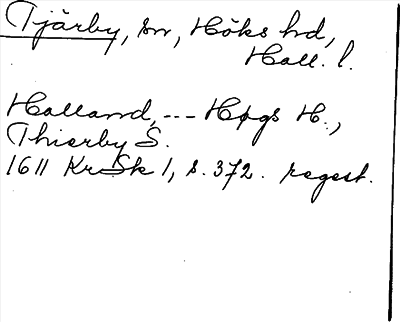 Tjärby, sn, Höks hd,
Hall. l.
Halland, --- Høgs H.,
Thierby S.
1611 KrSk 1, s. 372. regest.